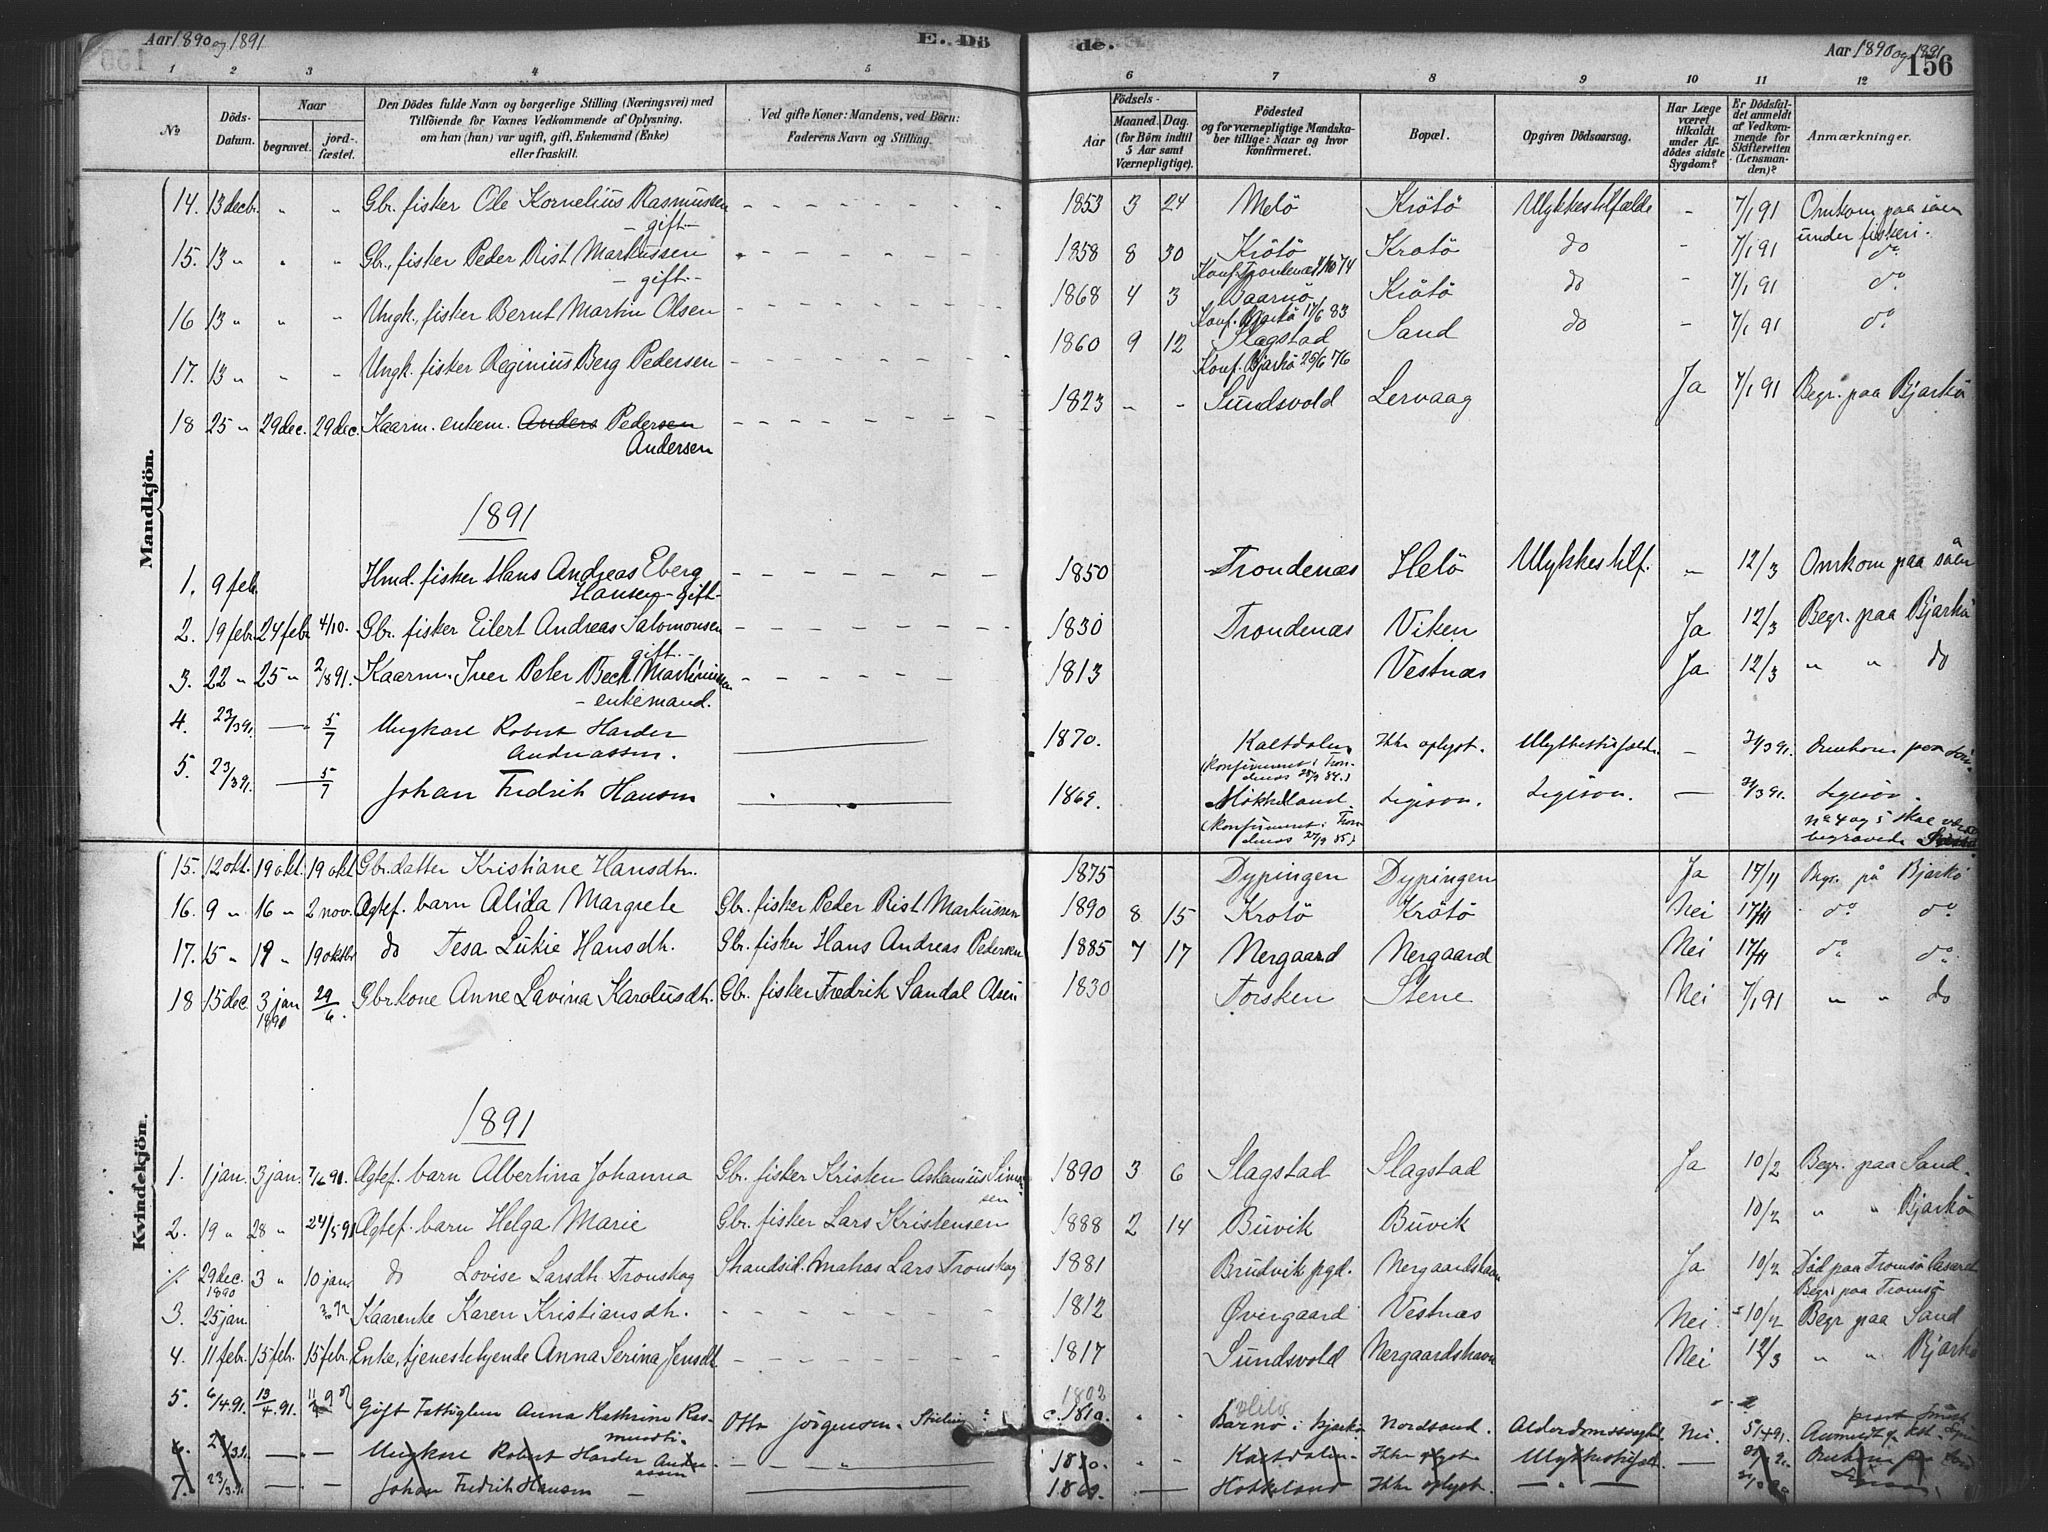 Aar 1890 og 1891 E. Dö de. Aar 1890 og 1891 156
1 2 3 4 5 6 7 8 9 10 11 12
No. Döds-Datum. Naar begravet. jord-fæstet. Den Dödes fulde Navn og borgerlige Stilling (Næringsvei) med Tilföiende for Voxnes Vedkommende af Oplysning, om han (hun) var ugift, gift, Enkemand (Enke) eller fraskilt. Ved gifte Koner: Mandens, ved Börn: Faderens Navn og Stilling. Födsels- Aar Maaned. Dag. (for Börn indtil 5 Aar samt Værnepligtige). Födested og for værnepligtige Mandskaber tillige: Naar og hvor konfirmeret. Bopæl. Opgiven Dödsaarsag. Har Læge været tilkaldt under Afdödes sidste Sygdom? Er Dödsfaldet anmeldt af Vedkommende for Skifteretten (Lensmanden)? Anmærkninger.
Mandkjön.
14. 13 decbr. " " Gbr. fisker Ole Kornelius Rasmussen - gift - 1853 3 24 Melö Krötö Ulykkestilfælde - 7/1 91 Omkom paa söen under fiskeri.
15. 13 " " " Gbr., fisker Peder Rist Markussen - gift - 1858 8 30 Krötö Konf. Trondenæs 74 Krotö do - 7/1 91 do
16 13 " " " Ungk., fisker Bernt Martin Olsen 1868 4 3 Baarnö Konf. Bjarkö 17/6 83 Krötö do - 7/1 91 do
17. 13 " " " Ungk. fisker Reginius Berg Pedersen 1860 9 12 Slagstad Konf. Bjarkö 25/6 76 Sand do - 7/1 91 do
18 25 " 29 dec. 29 dec. Kaarm. enkem. Anders Pedersen Andersen 1823 - - Sundsvold Lervaag Ja 7/1 91 Begr. paa Bjarkö
1891
1. 9 feb. Hmd. fisker Hans Andreas Eberg Hansen - gift - 1850 Trondenæs Helö Ulykkestilf. - 12/3 Omkom paa söen
2. 19 febr. 24 febr 4/10. Gbr. fisker Eilert Andreas Salomonsen gift - 1830 Trondenæs Viken Ja 12/3 Begr. paa Bjarkö
3. 22 " 25 " 2/8 91. Kaarm. Iver Peter Beck Martinussen - enkemand. 1813 Vestnæs Ja 12/3 " " do
4. 23/3 91. — 5/7 Ungkarl Robert Harder Andreassen. 1870. Kaltdalen (konfirmeret i Trondenæs 84.) Ikke oplyst. Ulykkestilfælde — 31/3 91. Omkom paa söen
5. 23/3 91. — 5/7 Johan Fredrik Hansen 1869. Mökkeland. (konfirmeret i Trondenæs 27/9 85) Ligeson. Ligeson. — 31/3 91. Ligesön.
No 4 og 5 skal være begravede
Kvindekjön.
15. 12 okt. 19 okt. 19 okt Gbr.datter Kristiane Hansdtr. 1875 Dypingen Dypingen Ja 17/11 Begr. på Bjarkö
16. 9 " 16 " 2 nov. Ægtef. barn Alida Margrete Gbr. fisker Peder Rist Markussen 1890 8 15 Krotö Krötö Nei 17/11 do do
17. 15 " 19 " 19 oktbr do Tesa Lukie Hansdtr. Gbr. fisker Hans Andreas Pedersen 1885 7 17 Nergaard Nergaard Nei 17/11 do do
18 15 dec. 3 jan 1890 29/6. Gbrkone Anne Lavina Karolusdtr. Gbr. fisker Fredrik Sandal Olsen 1830 Torsken Stene Nei 7/1 91 " " do
1891
1. 1 jan. 3 jan. 7/6 91. Ægtef. barn Albertina Johanna Gbr. fisker Kristen Askemius Simonsen 1890 3 6 Slagstad Slagstad Ja 10/2 Begr. paa Sand.
2. 19 " 28 " 24/5 91 Ægtef. barn Helga Marie Gbr. fisker Lars Kristensen 1888 2 14 Buvik Buvik 10/2 " " Bjarkö
29 dec. 1890 3 " 10 jan. do Lovise Larsdtr. Tronskog Lars Tronskog 1881 Brudvik pgd. Nergaardshavn Ja 10/2 Död paa Tromsö Begr. paa Tromsö
3. 25 jan. Kaarenke Karen Kristiansdtr. 1812 Øvergaard Vestnæs Nei 10/2 Begr paa Sand
4. 11 febr. 15 febr. 15 febr. Enke, tjenestetyende Anna Serina Jensdtr 1817 Sundsvold Nergaardshavn Nei 12/3 " " Bjarkö
5. 6/4 91. 13/4 91. Gift Fattiglem Anna Kathrine Rasmusdtr. Otto Jörgensen. Stilling? 1802 c. 1810. " " Barnö i Bjarkö Nordsand. Alderdomssvaghed Nei. 5/4 91.
6. 23/3 91. — - Ungkarl Robert Harder Andreassen 1870. Kaltdalen. Ikke oplyst. Ulykkestilfæld. — Omkom paa
7. 23/3 91. — - Johan Fredrik Hansen 1869. Mökkeland Ikke oplyst. — " —